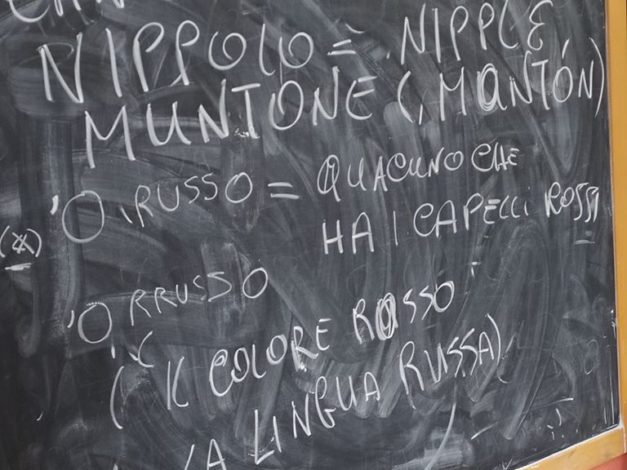 NIPPOLO = NIPPLE
MUNTONE (MONTÓN)
'O RUSSO = QUACUNO CHE
HA I CAPELLI ROSSI
(*)
'O RRUSSO
(IL COLORE ROSSO
LA LINGUA RUSSA)